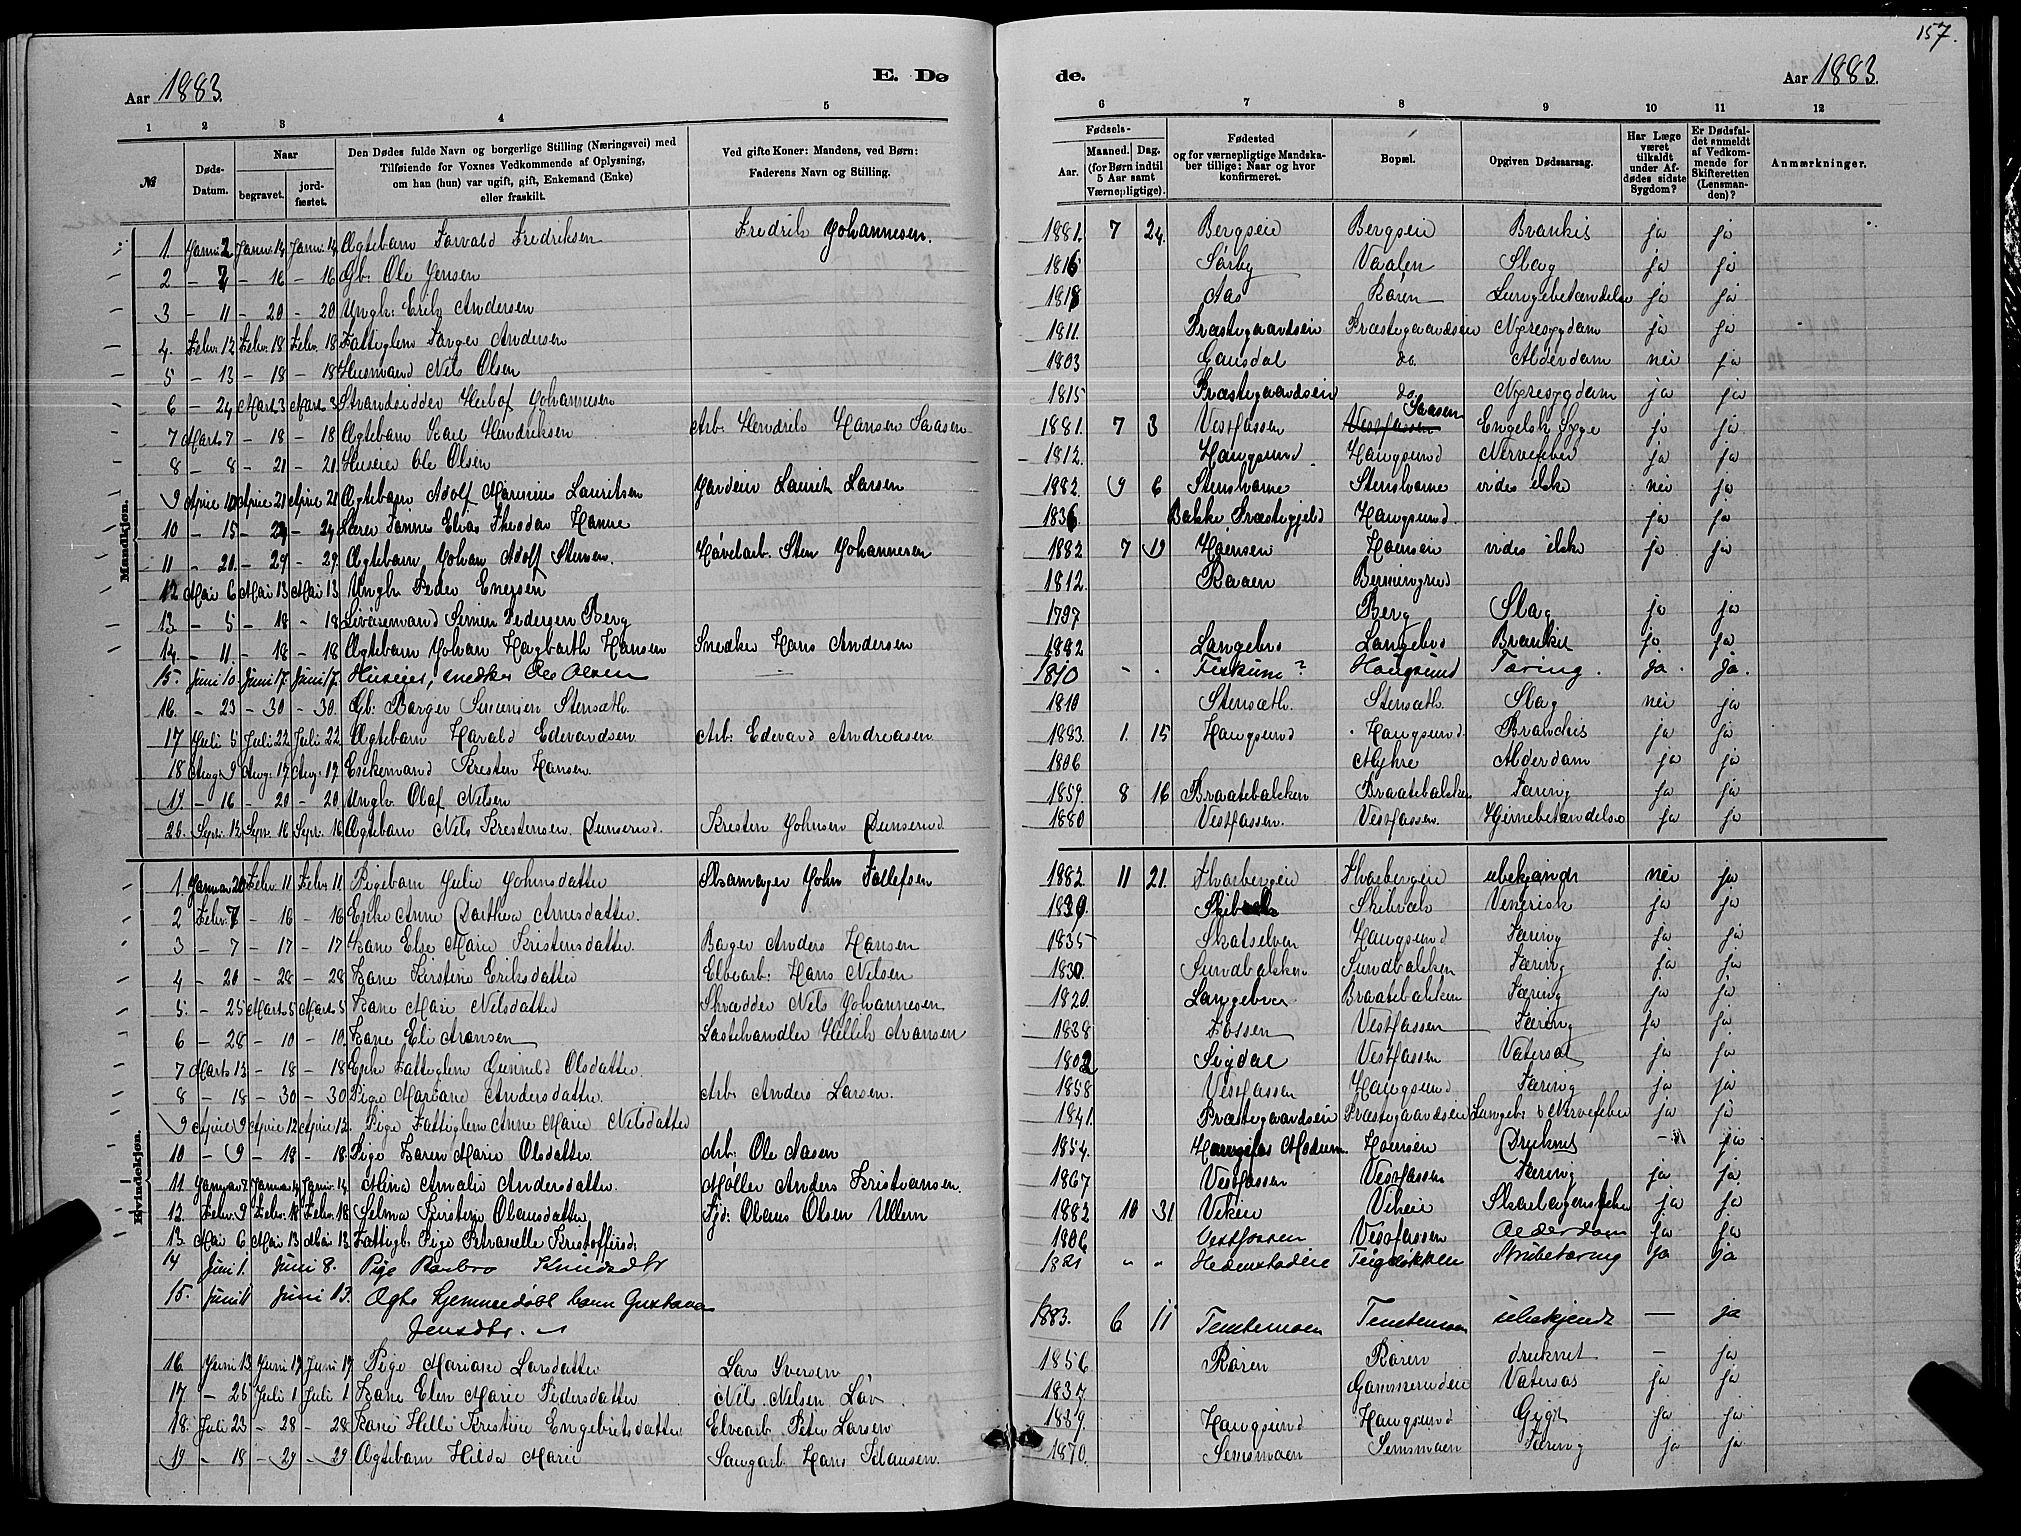 157.
Aar 1883.
E. Dø
de.
Aar 1883.
1 2 3 4 5 6 7 8 9 10 11 12
№
Døds-Datum.
Naar
begravet.
jord-fæstet.
Den Dødes fulde Navn og borgerlige Stilling (Næringsvei) med
Tilføiende for Voxnes Vedkommende af Oplysning,
om han (hun) var ugift, gift, Enkemand (Enke)
eller fraskilt.
Ved gifte Koner: Mandens, ved Børn:
Faderens Navn og Stilling.
Fødsels-
Aar.
Maaned.
Dag.
(for Børn indtil
5 Aar samt
Værnepligtige).
Fødested
og for værnepligtige Mandska-
ber tillige: Naar og hvor
konfirmeret.
Bopæl.
Opgiven Dødsaarsag.
Har Læge
været
tilkaldt
under Af-
dødes sidste
Sygdom?
Er Dødsfal-
det anmeldt
af Vedkom-
mende for
Skifteretten
(Lensman-
den)?
Anmærkninger.
Mandkjøn.
1. Janu. 2 Janu. 14 Janu. 14 Ægtebarn Torvald Fredriksen Fredrik Johannesen. 1881. 7 24. Bergseie Bergseie Bronkis ja ja
2 - 7 - 16 - 16 Gb: Ole Jensen 1816 Sørby Vaalen Slag ja ja
3 - 11 - 20 - 20 Ungk: Erik Andersen 1818 Aas Røren Lungebetændelse ja ja
4. Febr. 12 Febr. 18 Febr. 18 Fattiglem Torger Andersen 1811. Præstegaardseie Præstegaardseie Nyresygdom ja ja
5 - 13 - 18 - 18 Husmand Nils Olsen 1803 Gausdal do. Alderdom nei ja
6 - 24 Marts 3 Marts 3 Strandsidder Johannesen 1815 Præstegaardseie do Nyresygdom ja ja
7 Marts 7 - 18 - 18 Ægtebarn Kare Hendriksen Arb. Hendrik Hansen Saasen 1881. 7 3 Vestfossen Saasen Engelsk Syge ja ja
8 - 8 - 21 - 21. Huseier Ole Olsen 1812. Haugsund Haugsund Nervefeber ja ja
9 April 10 April 21 April 21 Ægtebarn Adolf Marinius Lauritsen Gardeier Laurits Larsen 1882. 9 6 vides ikke nei ja
10 - 15 - 24 - 24 Theodor Hanne 1836. Bakke Præstegjeld Haugsund. ja ja
11 - 20. - 29 - 29. Ægtebarn Johan Adolf Stensen. Høvelarb. Sten Johannesen 1882 7 19 Hoensen Hoenseie vides ikke ja ja
12 Mai 6 Mai 13 Mai 13 Ungk. Peder Enersen 1812. Raaen
13 - 5 - 18 - 18 Simen Pedersen Berg 1797 Berg Slag ja ja
14 - 11. - 18 - 18 Ægtebarn Johan Hagbarth Hansen Snedker Hans Andersen 1882 Langebro Langebro Bronkit ja ja
15 Juni 10. Juni 17. Juni 17. Huseier, snedker Ole Olsen — 1810 - - Fiskum? Haugsund Tæring. Ja. Ja.
16. - 23 - 30 - 30. Gb: Borger Simensen Stensæth. 1810 Stensæth. Stensæth. Slag nei ja
17 Juli 5 Juli 22 Juli 22 Ægtebarn Harald Edvardsen Arb: Edvard Andreasen 1883. 1. 15 Haugsund Haugsund. Bronchis ja ja
18 Aug. 9 Aug. 17 Aug. 17 Enkemand Kresten Hansen. 1806 Myhre Alderdom ja ja
19. - 16 - 20 - 20 Ungk. Olaf Nilsen 1859. 8 16 Braatebakken Braatebakken Tæring ja ja
20. Sept. 12 Sept. 16 Sept. 16 Ægtebarn Nils Krestensen Dunserud. Kresten Johnsen Dunserud. 1880 Vestfossen. Vestfossen. Hjernebetændelse ja ja
Kvindekjøn.
1. Januar 20 Febr. 11 Febr. 11 Pigebarn Julie Johnsdatter Skomager John Tollefsen 1882. 11 21. ubekjendt nei ja
2 Febr. 7 - 16 - 16 Enke Anne Dorthea Arnesdatter. 1839. Skibvæk Venerisk ja ja
3 - 7 - 17 - 17 Kone Else Marie Kristensdatter. Bager Anders Hansen 1835 Skotselven Haugsund Tæring ja ja
4 - 20 - 28 - 28 Kone Kirstine Eriksdatter Elvearb. Hans Nilsen 1830. Sundbakken Sundbakken Tæring ja ja
5. - 25 Marts 5 Marts 5 Kone Marie Nilsdatter Skrædder Nils Johannesen 1820. Langebroe Braatebakken Tæring ja ja
6 - 28 - 10 - 10. Kone Eli Aronsen Hellik Aronsen 1838 Fossen Vestfossen Tæring ja ja
7 Marts 13 - 18 - 18 Enke Fattiglem Gunnild Olsdatter. 1802 Sigdal Vestfossen Vatersot ja ja
8 - 18 - 30 - 30 Pige Mariane Andersdatter. Arb. Anders Larsen. 1858 Vestfossen Haugsund Tæring ja ja
9 April 9 April 12 April 12. Pige Fattiglem Anne Marie Nilsdatter 1841. Præstegaardseie Præstegaardseie Lungeb. & Nervefeber ja ja
10 - 9 - 18 - 18. Pige Karen Marie Olsdatter. Arb: Ole Aasen 1854. Modum. Hoensen Druknet — ja
11 Januar 7. Januar 14 Janu. 14 Alina Amalie Andersdatter. Møller Anders Kristiansen. 1867 Vestfossen Vestfossen Tæring ja ja
12. Febr. 9 Febr. 18 Febr. 18 Selma Kirstine Olausdatter Gjd: Olaus Olsen Ullern 1882 10 31. Vikeie Vikeie Skarlagensfeber ja ja
13 Mai 6 Mai 13 Mai 13 Fattigl. Pige Petronelle Kristoffersd. 1806 Vestfossen Vestfossen Alderdom ja ja
14 Juni 1. Juni 8. Pige Barbro Knudsdtr 1821 " " Hedenstadeie Teigeløkken Strubetæring ja ja
15. Juni 11 Juni 13. Ægte hjemmedøbt barn Gustava
Jensdtr. 1883. 6 11 Temtemoen Temtemoen ubekjendt — ja
16. Juni 13 Juni 17 Juni 17 Pige Mariane Larsdatter Lars Iversen 1856 Røren Røren druknet — ja
17. - 25 Juli 1 Juli 1 Kone Elen Marie Pedersdatter Nils Nilsen Løv 1837 Gommerudeie Vatersot ja ja
18. Juli 23 - 28 - 28 Kone Helle Kristine Engebretsdatter Elvearb. Peter Larsen 1839. Haugsund Haugsund Gigt ja ja
19 - 18 - 29 - 29 Ægtebarn Hilda Marie Saugarb. Hans Klausen. 1870. Semsmoen Semsmoen Tæring ja ja